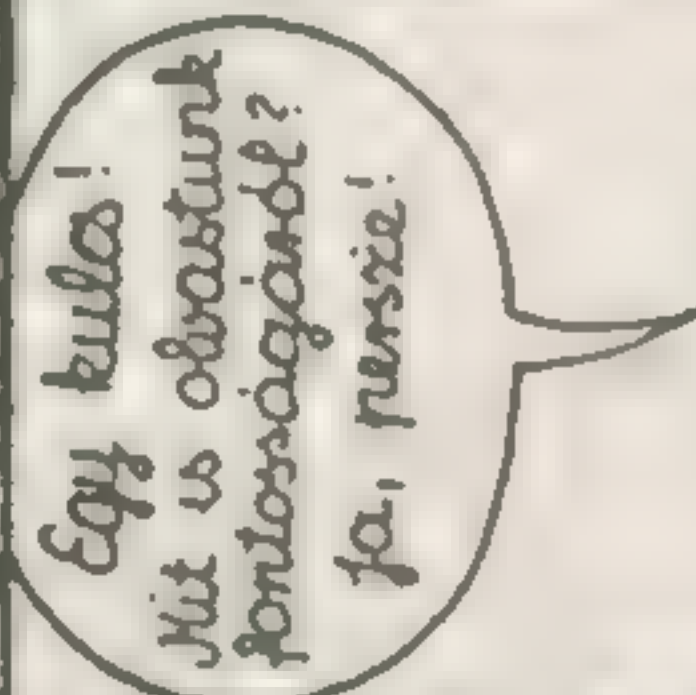 Egy kulcs!
Mit is olvastunk
fontosságáról?
Ja, persze!